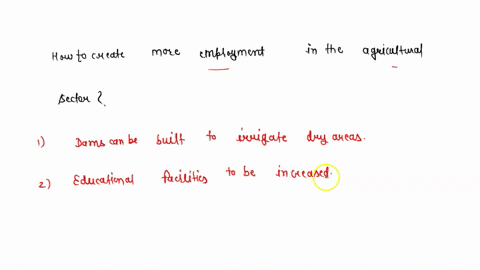 How to create more employment in the agricultural
sector?
1) Dams can be built to irrigate dry areas.
2) Educational facilities to be increased.